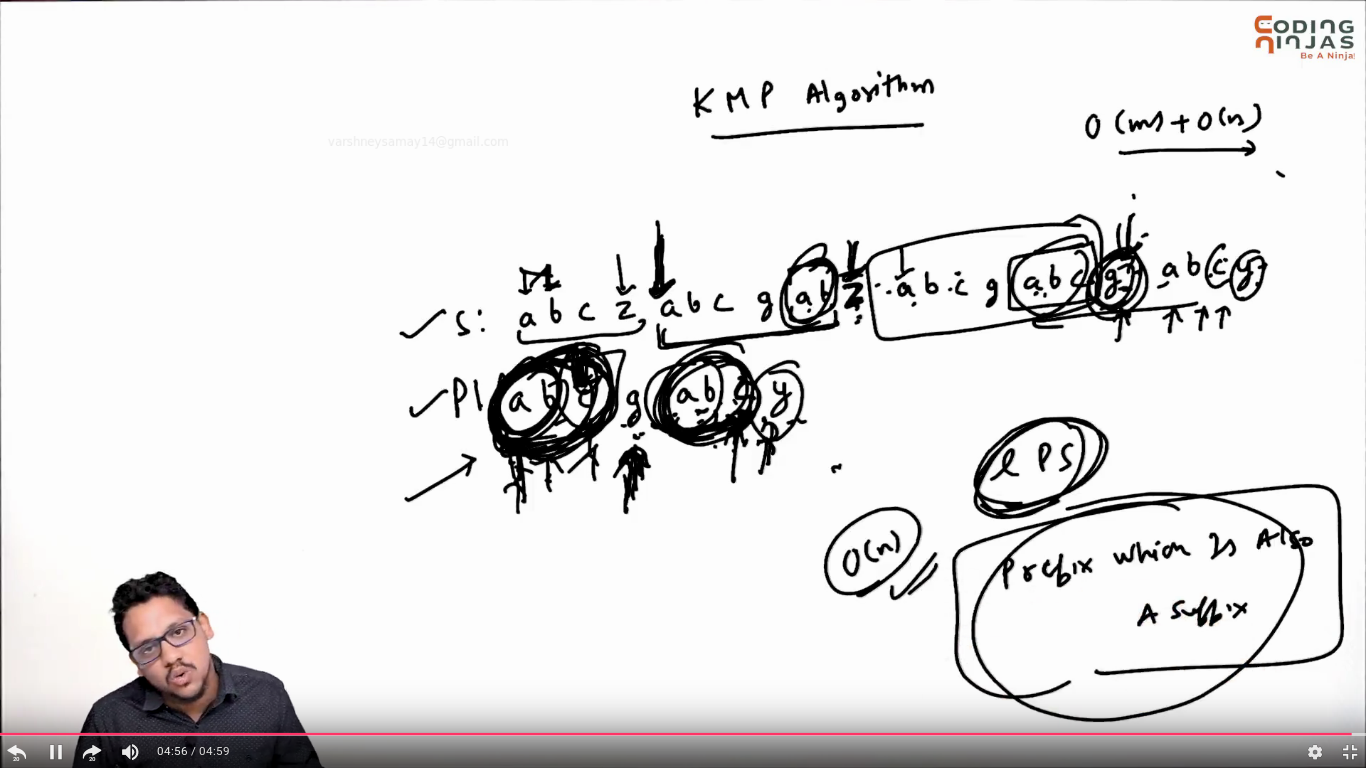 CODING
NINJAS
Be A Ninja!
KMP Algorithm
O(m)+O(n)
varshneysamay14@gmail.com
S: a b c z a b c g a b z a b c g a b c g a b c y
P1 a b c g a b c y
LPS
O(n)
Prefix which Is Also
A suffix
20
20
04:56 / 04:59